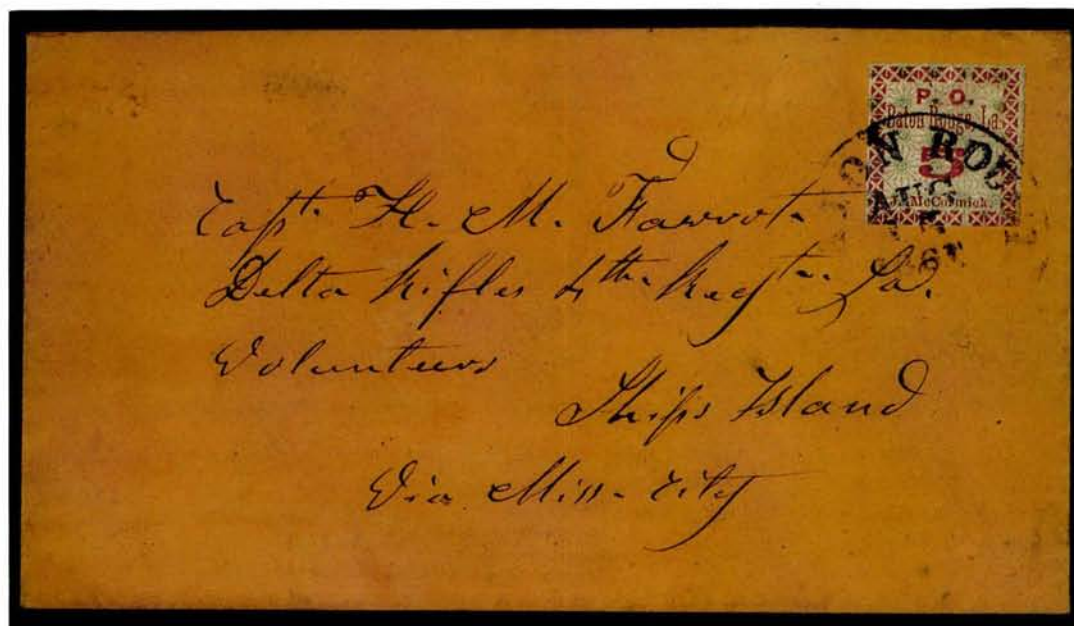 P. O.
Baton Rouge, La.
5
J. McCormick.
ON ROU
AUG
5
Capt. H. M. Favrot.
Delta Rifles 4th Regtn. La.
Volunteers
Ships Island
Via Miss. City